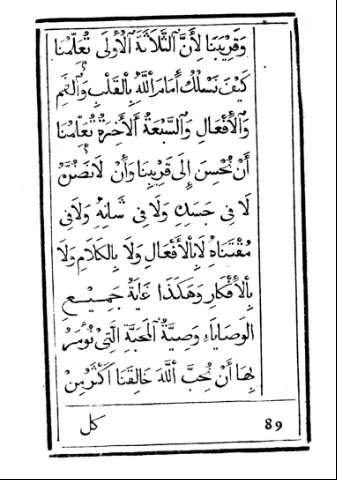 وَقَرِيبَنَا لِأَنَّ الثَّلَاثَةَ الْأُولَى تُعَلِّمُنَا
كَيْفَ نَسْلُكُ أَمَامَ اللّٰهِ بِالْقَلْبِ وَالْفَمِ
وَالْأَفْعَالِ وَالسَّبْعَةُ الْأَخِرَةُ تُعَلِّمُنَا
أَنْ نُحْسِنَ إِلَى قَرِيبِنَا وَأَنْ لَا نَضُرَّهُ
لَا فِي جَسَدِهِ وَلَا فِي شَانِهِ وَلَا فِي
مُقْتَنَاهُ لَا بِالْأَفْعَالِ وَلَا بِالْكَلَامِ وَلَا
بِالْأَفْكَارِ وَهَكَذَا غَايَةُ جَمِيعِ
الْوَصَايَاءِ وَصِيَّةُ الْمَحَبَّةِ الَّتِي نُؤْمَرُ
بِهَا أَنْ نُحِبَّ اللّٰهَ خَالِقَنَا أَكْثَرَ مِنْ
كل
89